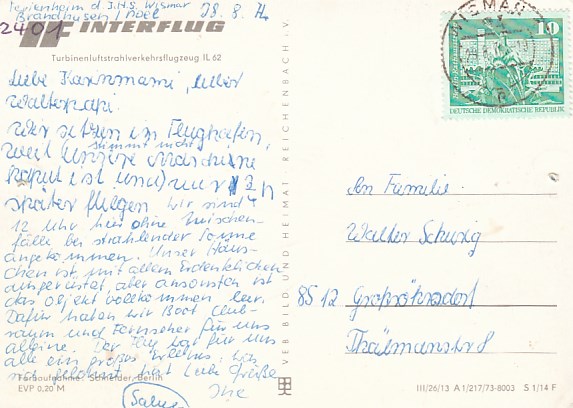 Ferienheim d. I.H.S. Wismar
Brandhusen / Poel 28.8.74
2401
IF INTERFLUG
Turbinenluftstrahlverkehrsflugzeug IL 62
Liebe Karinmami, lieber
Walterpapi.
Wir sitzen im Flughafen,
stimmt nicht
weil unsere Maschine
kaput ist und nur 3 h
später fliegen Wir sind
12 Uhr hier ohne Zwischen-
fälle bei strahlender Sonne
angekommen. Unser Häus-
chen ist mit allem Erdenklichen
ausgerüstet, aber ansonsten ist
das Objekt vollkommen leer.
Dafür haben wir Boot Club-
raum und Fernseher für uns
alleine. Der Flug war für uns
alle ein großes Erlebnis,
sich gelohnt hat Liebe Grüße
Ine
Farbaufnahme: Schneider, Berlin
EVP 0,20 M
VEB BILD UND HEIMAT REICHENBACH i. V.
WISMAR
10
DEUTSCHE DEMOKRATISCHE REPUBLIK
An Familie
Walter Schurig
8512 Großröhrsdorf
Thälmannstr 8
III/26/13 A 1/217/73-8003 S 1/14 F